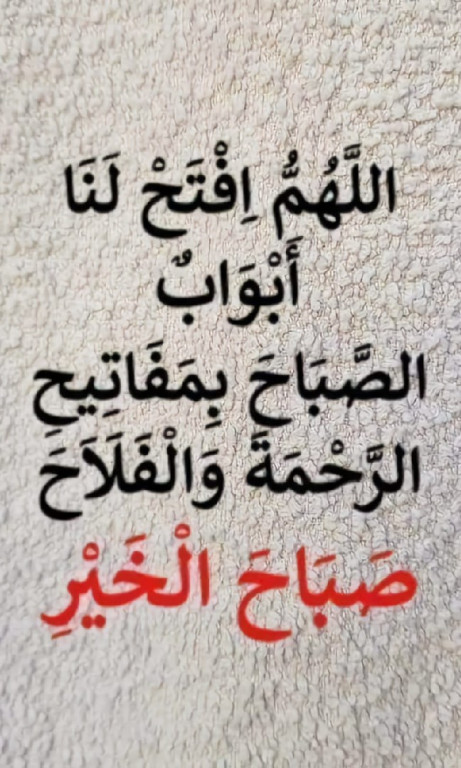 اللَّهُمُّ اِفْتَحْ لَنَا
أَبْوَابٌ
الصَّبَاحَ بِمَفَاتِيحِ
الرَّحْمَةَ وَالْفَلَاَحَ
صَبَاحَ الْخَيْرِ